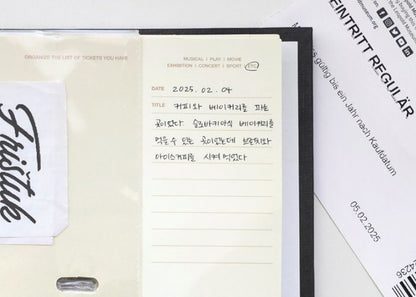 ORGANIZE THE LIST OF TICKETS YOU HAVE
Frištuk
MUSICAL | PLAY | MOVIE
EXHIBITION | CONCERT | SPORT | ETC
DATE 2025. 02. 04
TITLE 커피와 베이커리를 파는
곳이었다. 슬로바키아식 베이커리를
먹을 수 있는 곳이었는데 브런치와
아이스커피를 시켜 먹었다
EINTRITT REGULÄR
gültig bis ein Jahr nach Kaufdatum
05.02.2025